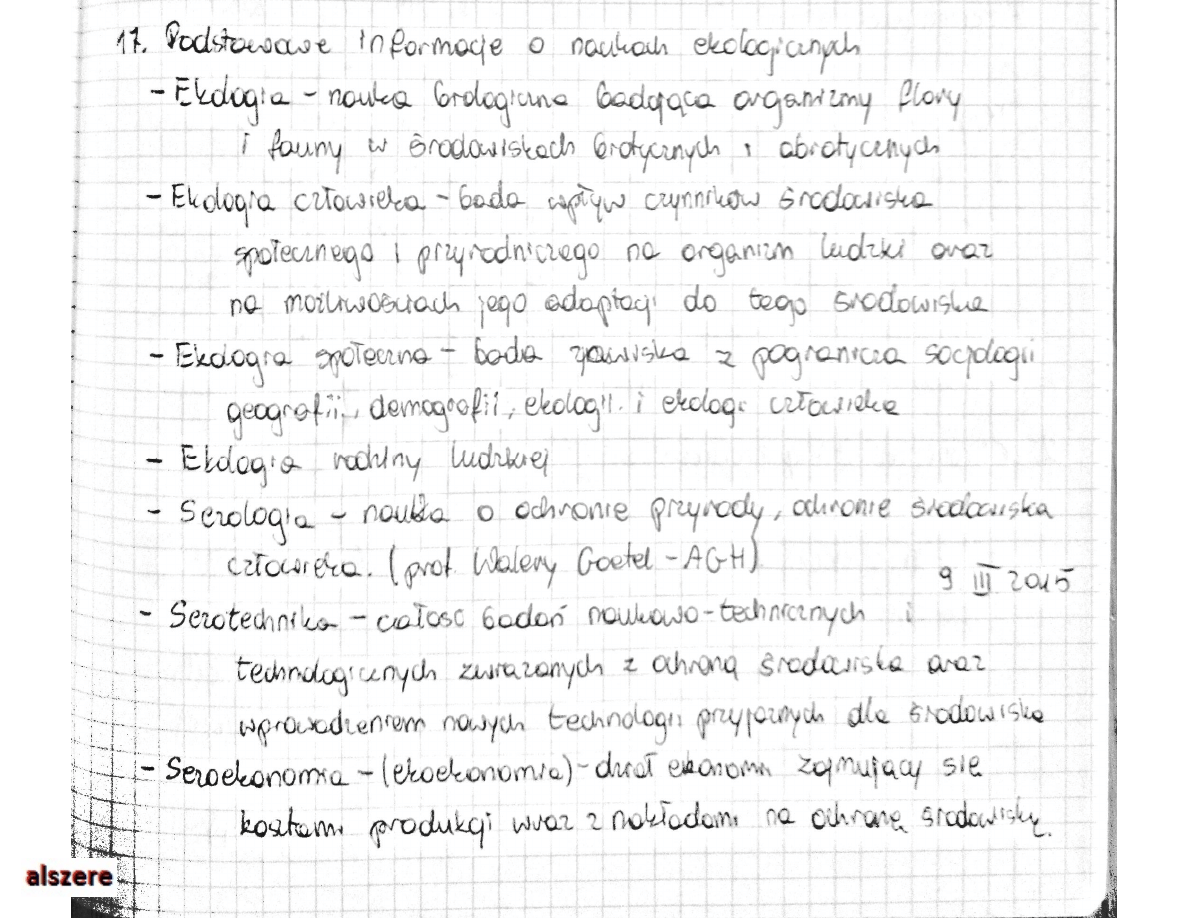 17. Podstawowe informacje o naukach ekologicznych
- Ekologia - nauka biologiczna badająca organizmy flory
i fauny w środowiskach biotycznych i abiotycznych
- Ekologia człowieka - bada wpływ czynników środowiska
społecznego i przyrodniczego na organizm ludzki oraz
na możliwościach jego adaptacji do tego środowiska
- Ekologia społeczna - bada zjawiska z pogranicza socjologii
geografii, demografii, ekologii i ekologi człowieka
- Ekologia rodziny ludzkiej
- Sozologia - nauka o ochronie przyrody, ochronie środowiska
człowieka. (prof. Walery Goetel - AGH)
9 III 2015
- Sozotechnika - całość badań naukowo-technicznych i
technologicznych związanych z ochroną środowiska oraz
wprowadzeniem nowych technologii przyjaznych dla środowiska
- Sozoekonomia - (ekoekonomia) - dział ekonomii zajmujący się
kosztami produkcji wraz z nakładami na ochronę środowiska.
alszere